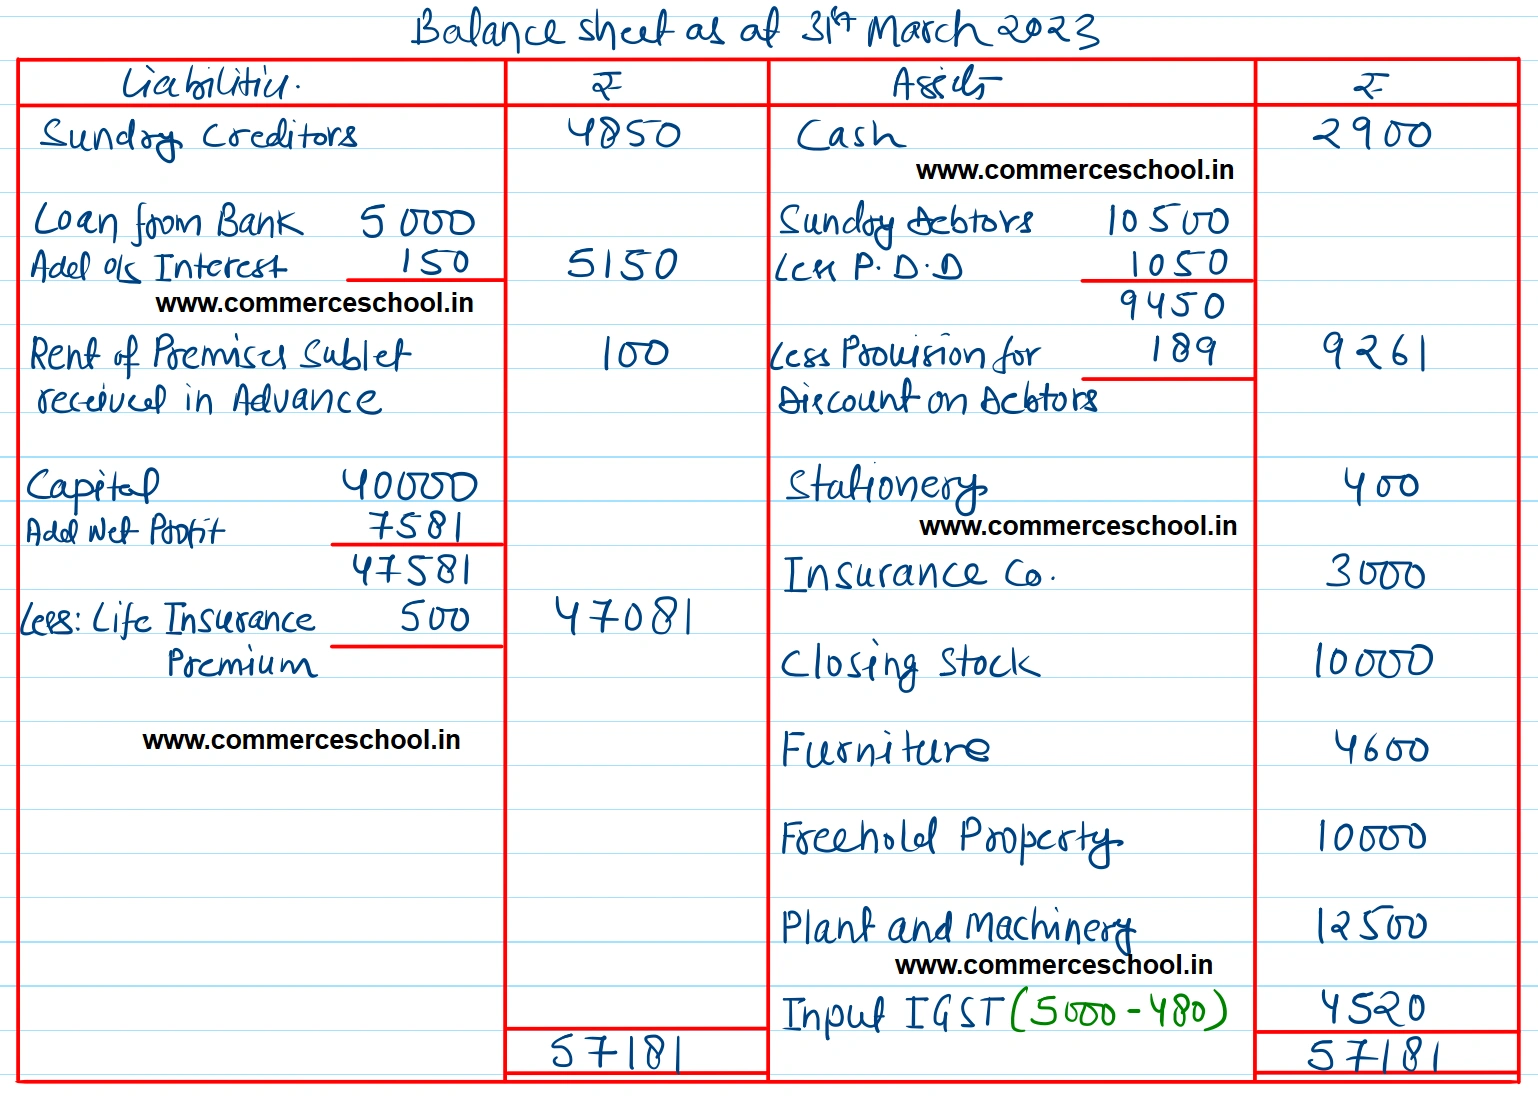 Balance sheet as at 31st March 2023
Liabilities. ₹ Assets ₹
Sundry Creditors 4850 Cash 2900
www.commerceschool.in
Loan from Bank 5000 Sundry Debtors 10500
Add o/s Interest 150 5150 Less P.D.D 1050
www.commerceschool.in 9450
Rent of Premises Sublet 100 Less Provision for 189 9261
received in Advance Discount on Debtors
Capital 40000 Stationery 400
Add Net Profit 7581 www.commerceschool.in
47581 Insurance Co. 3000
Less: Life Insurance 500 47081
Premium Closing Stock 10000
www.commerceschool.in Furniture 4600
Freehold Property 10000
Plant and Machinery 12500
www.commerceschool.in
Input IGST (5000-480) 4520
57181 57181